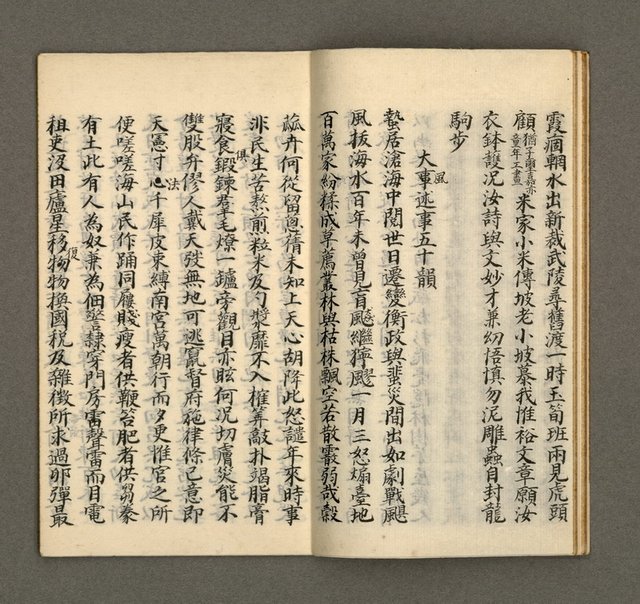 霞痼輞水出新裁武陵尋舊渡一時玉筍班兩見虎頭
顧猶子聖嘉稱童年工畫米家小米傳坡老小坡慕我惟裕文章願汝
衣鉢護況汝詩與文妙才兼幼悟慎勿泥雕蟲自封龍
駒步
大事述事五十韻
風
蟄居滄海中閱世日遷變衡政與蜚災間出如劇戰颶
風拔海水百年未曾見盲颷繼獰飂一月三怒煽臺地
百萬家紛糅成草薦叢林與枯株飄空若散霰弱哉縠
蓏卉何從留蔥蒨未知上天心胡降此怒譴年來時事
非民生苦熬煎粒米及勺漿靡不入榷算敲朴竭脂膏
寢食俱鍛鍊羣毛燎一鑪旁觀目亦眩何況切膚災能不
雙股弁僇人戴天弢無地可逃竄督府施律條己意即
天憲寸心千犀皮束縛南宮萬朝行而夕更惟官之所
法
便嗟嗟海山民作踊同屨賤瘦者供鞭笞肥者供芻豢
有土此有人為奴兼為佃罟隸穿門房雷聲雷而目電
租吏沒田廬星移物物換國稅及雜徵所求過卵彈最
復